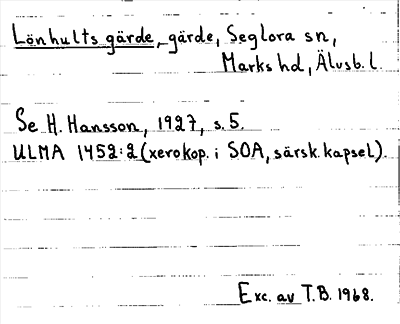 Lönhults gärde, gärde, Seglora sn,
Marks hd, Älvsb. l.
Se H. Hansson, 1927, s. 5.
ULMA 1452:2 (xerokop. i SOA, särsk. kapsel).
Exc. av T.B. 1968.